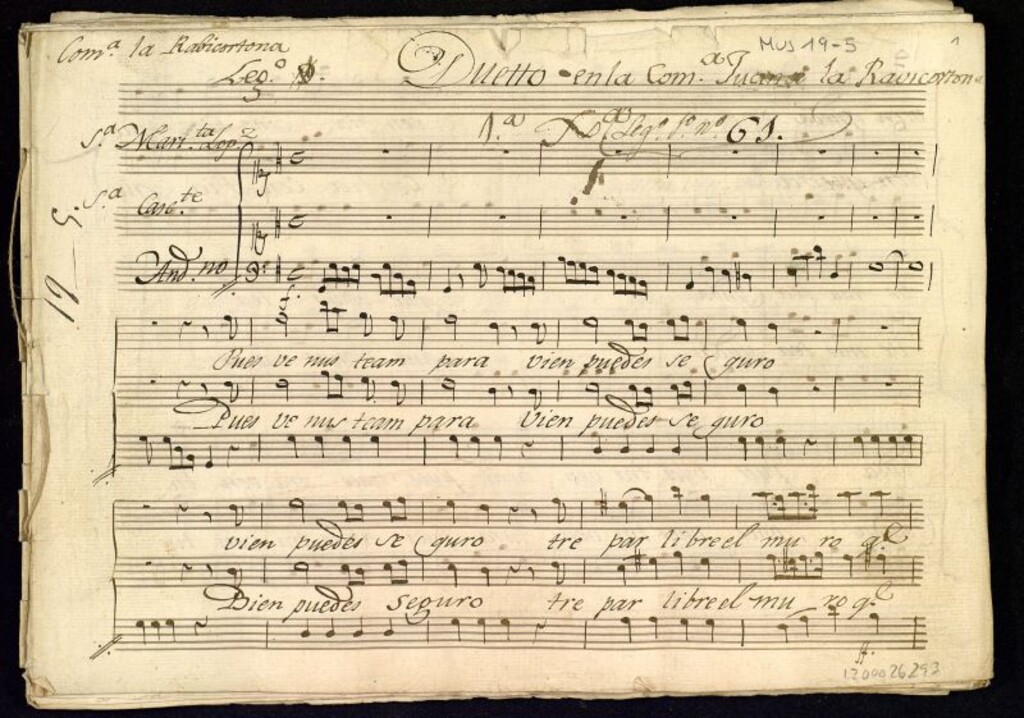 Com.ª la Rabicortona
Leg.º
Mus 19-5
1
Duetto en la Com.ª Juana la Ravicortona
1.ª Leg.º 1.º n.º 61.
S.ª Mari.ta Lop.z
S.ª Casi.te
And.no
19-5.
Pues ve nus team para vien puedes se guro
Pues ve nus team para vien puedes se guro
vien puedes se guro tre par libreel mu ro q.e
Bien puedes seguro tre par libreel mu ro q.e
1200026293